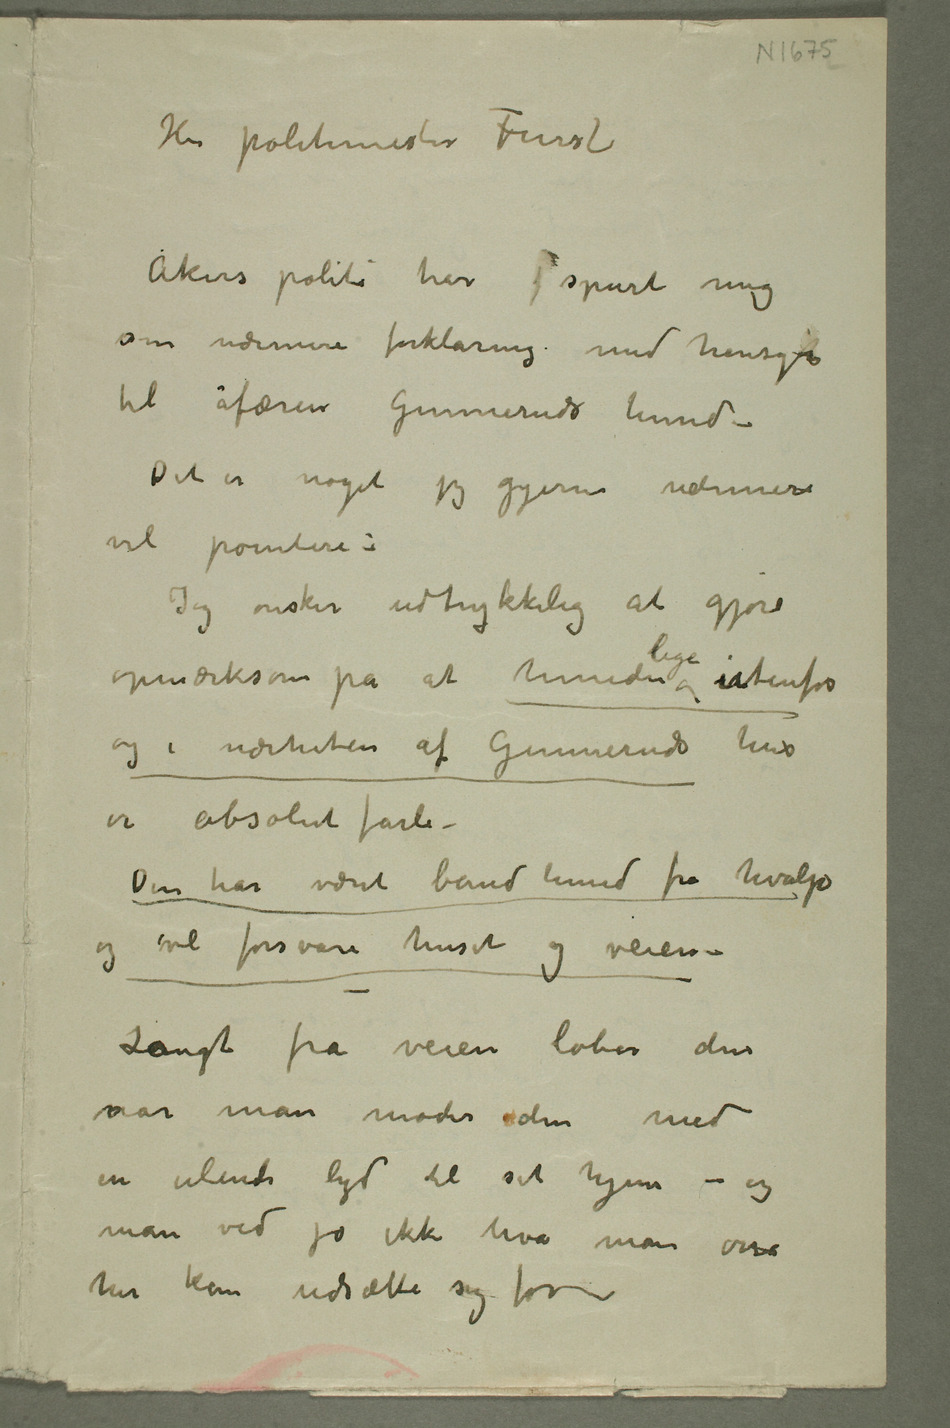 N1675
Hr politimester Furst
Akers politi har spurt mig
om nærmere forklaring med hensyn
til afæren Gunneruds hund –
Det er noget jeg gjerne nærmere
vil pointere:
Jeg ønsker udtrykkelig at gjøre
opmærksom på at hunden lige utenfor
og i nærheten af Gunneruds hus
er absolut farli –
Den har været båndhund fra hvalp
og vil forsvare huset og veien –
Langt fra veien løber den
naar man møder den med
en ulende lyd til sit hjem – og
man ved jo ikke hva man
her kan udsætte sig for